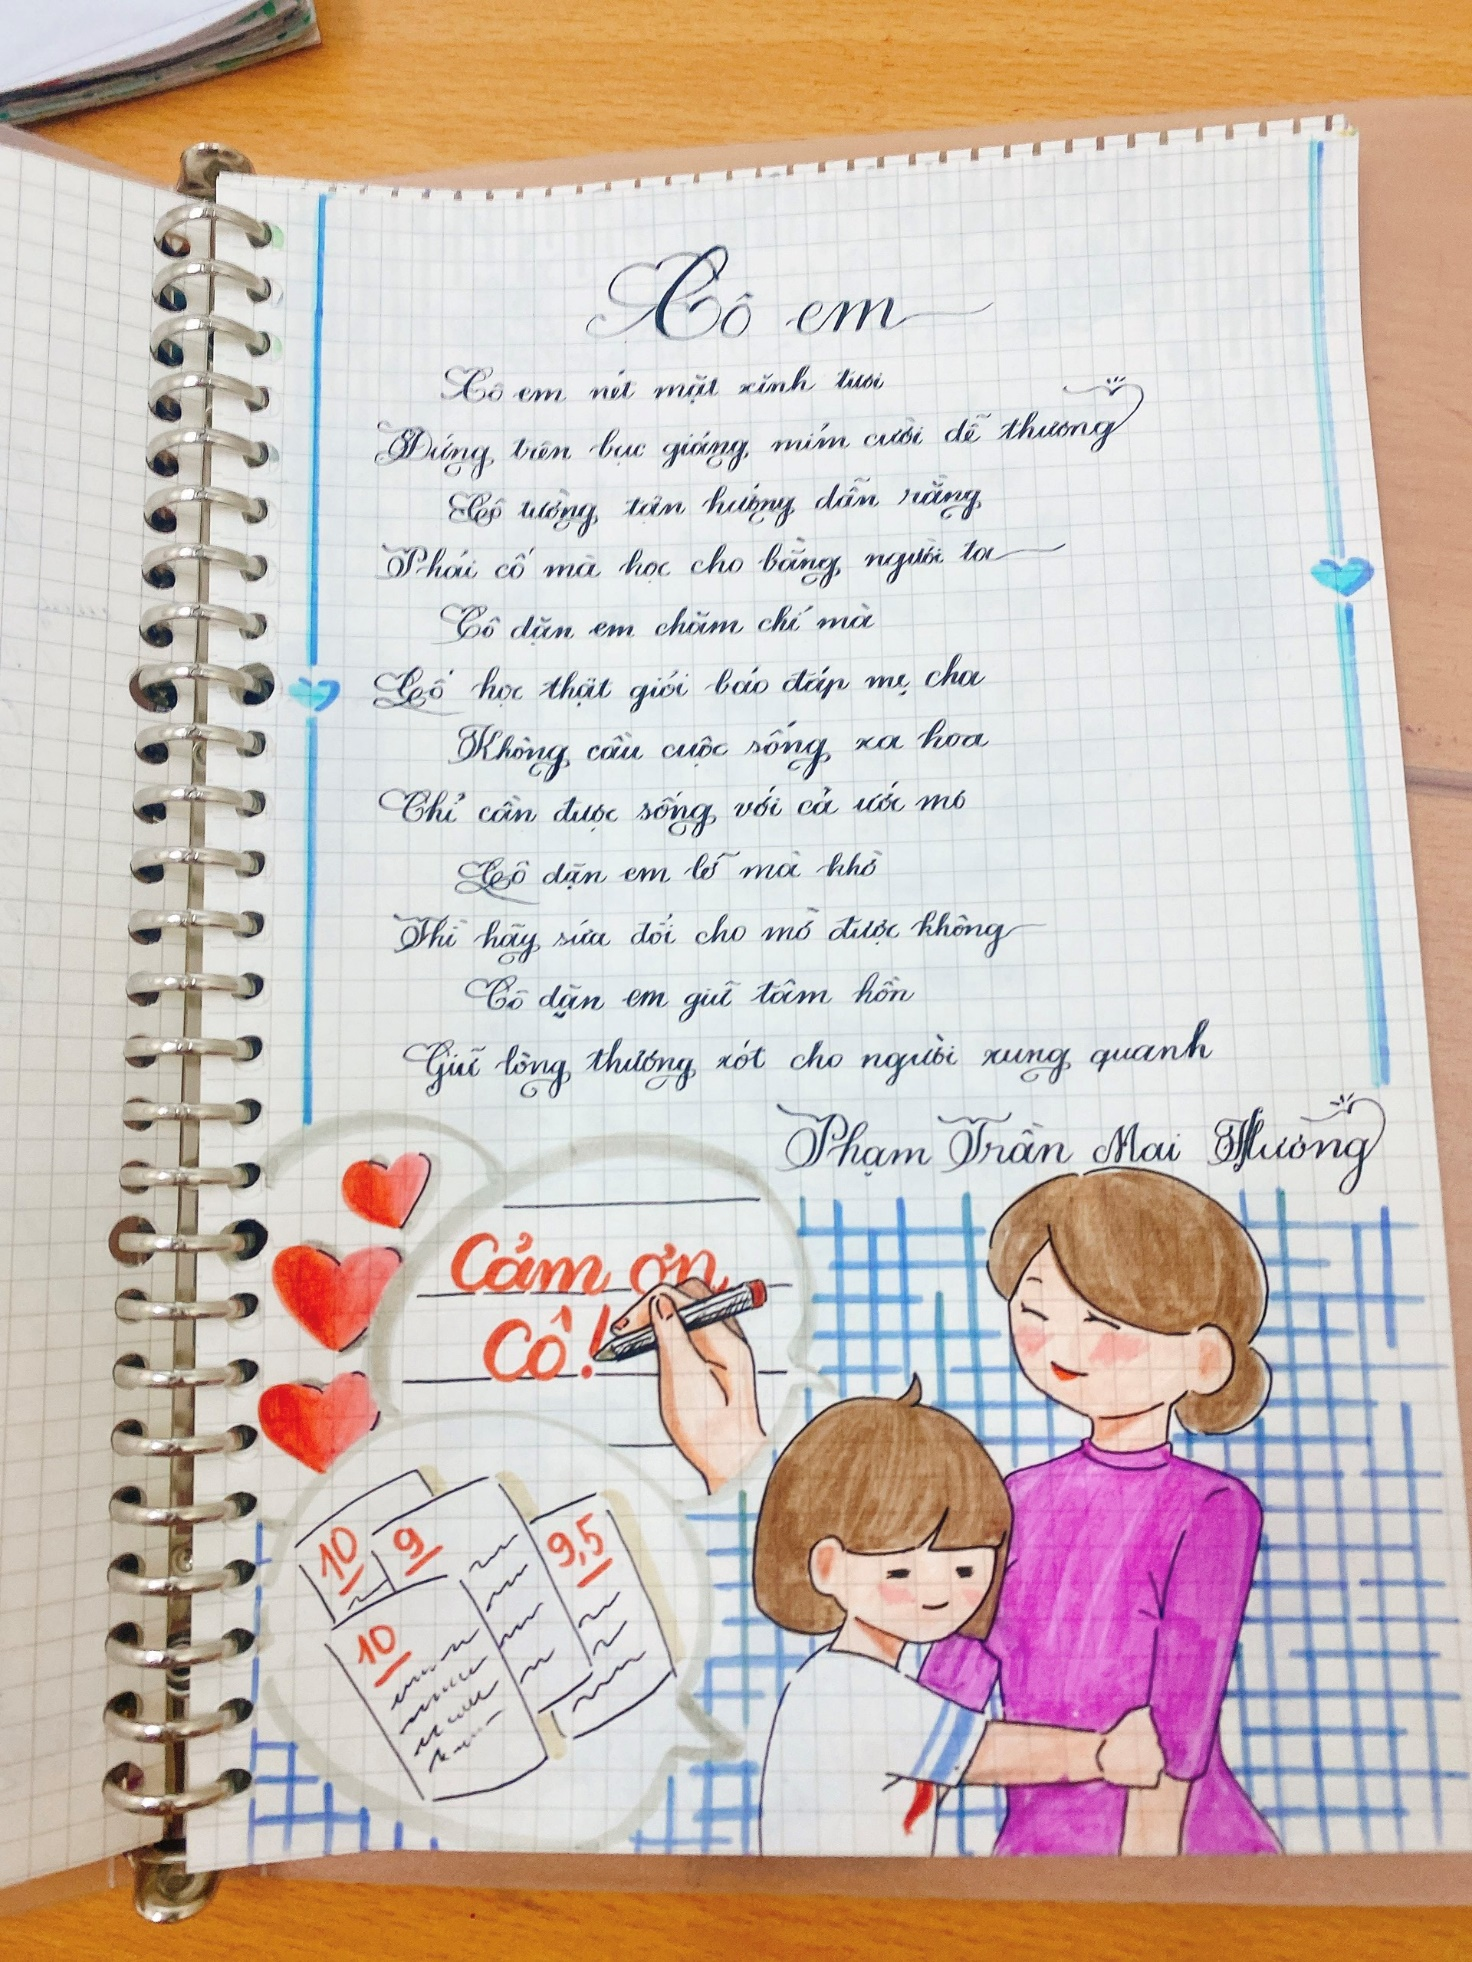 Cô em
Cô em nét mặt xinh tươi
Đứng trên bục giảng, mỉm cười dễ thương
Cô từng tận hưởng dẫn rằng
Phải cố mà học cho bằng người ta
Cô dặn em chăm chỉ mà
Cố học thật giỏi báo đáp mẹ cha
Không cầu cuộc sống xa hoa
Chỉ cần được sống với cả ước mơ
Cô dặn em lỡ mà khờ
Thì hãy sửa đổi cho mờ được không
Cô dặn em giữ tâm hồn
Giữ lòng thương xót cho người xung quanh
Phạm Trần Mai Hương
Cảm ơn
Cô!
10 9 9,5
10